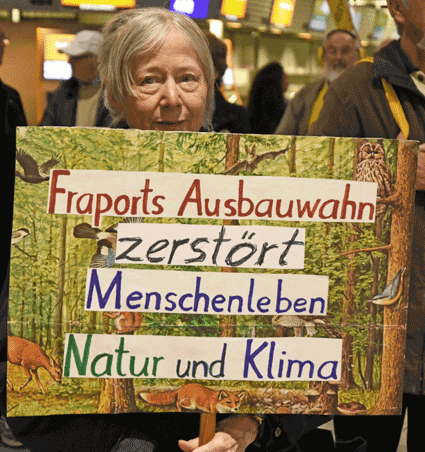 Fraports Ausbauwahn
zerstört
Menschenleben
Natur und Klima